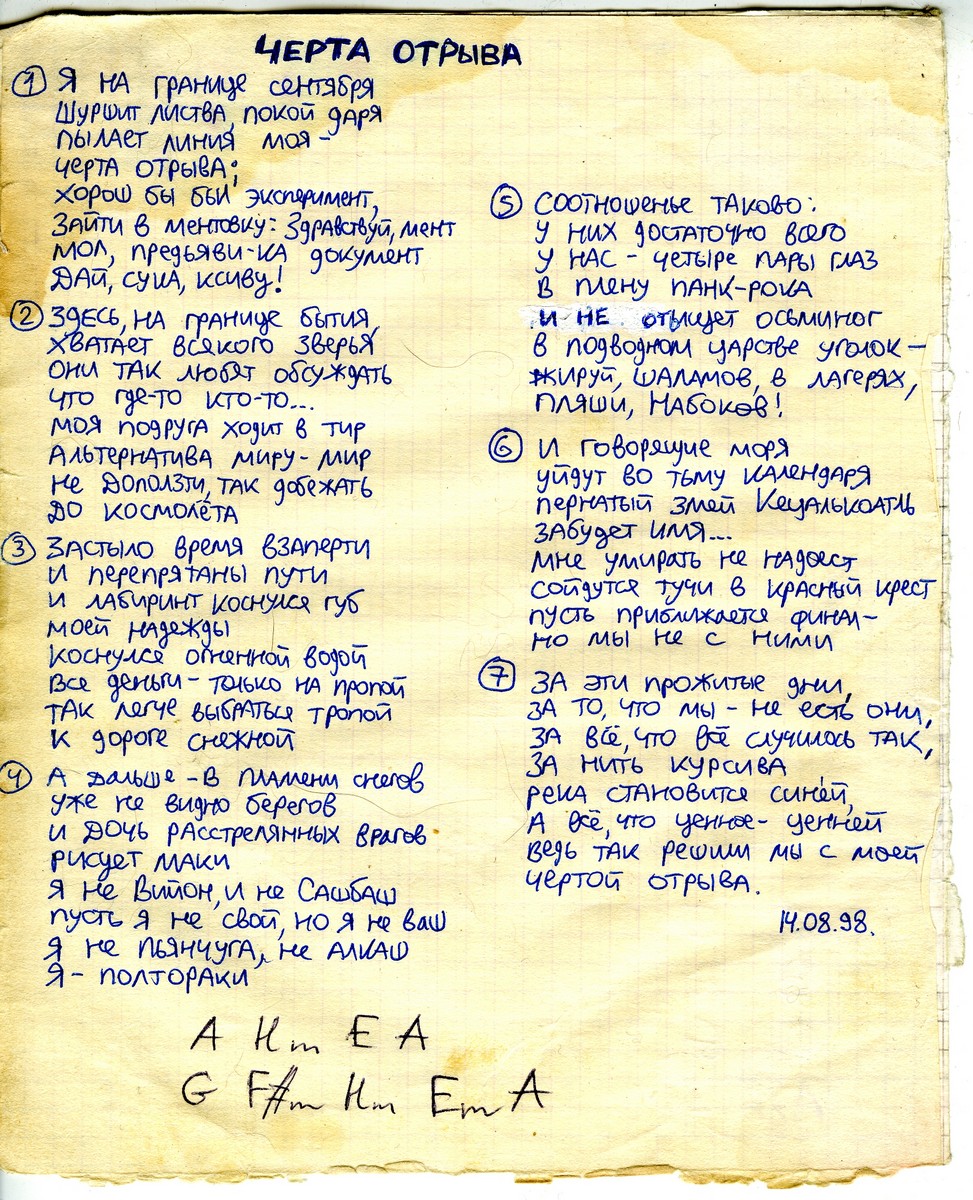 ЧЕРТА ОТРЫВА
1 Я НА ГРАНИЦЕ СЕНТЯБРЯ
ШУРШИТ ЛИСТВА, ПОКОЙ ДАРЯ
ПЫЛАЕТ ЛИНИЯ МОЯ -
ЧЕРТА ОТРЫВА;
ХОРОШ БЫ БЫЛ ЭКСПЕРИМЕНТ,
ЗАЙТИ В МЕНТОВКУ: ЗДРАВСТВУЙ, МЕНТ
МОЛ, ПРЕДЬЯВИ-КА ДОКУМЕНТ
ДАЙ, СУКА, КСИВУ!
2 ЗДЕСЬ, НА ГРАНИЦЕ БЫТИЯ,
ХВАТАЕТ ВСЯКОГО ЗВЕРЬЯ
ОНИ ТАК ЛЮБЯТ ОБСУЖДАТЬ
ЧТО ГДЕ-ТО КТО-ТО...
МОЯ ПОДРУГА ХОДИТ В ТИР
АЛЬТЕРНАТИВА МИРУ - МИР
НЕ ДОПОЛЗТИ, ТАК ДОБЕЖАТЬ
ДО КОСМОЛЁТА
3 ЗАСТЫЛО ВРЕМЯ ВЗАПЕРТИ
И ПЕРЕПРЯТАНЫ ПУТИ
И ЛАБИРИНТ КОСНУЛСЯ ГУБ
МОЕЙ НАДЕЖДЫ
КОСНУЛСЯ ОГНЕННОЙ ВОДОЙ
ВСЕ ДЕНЬГИ - ТОЛЬКО НА ПРОПОЙ
ТАК ЛЕГЧЕ ВЫБРАТЬСЯ ТРОПОЙ
К ДОРОГЕ СНЕЖНОЙ
4 А ДАЛЬШЕ - В ПЛАМЕНИ СНЕГОВ
УЖЕ НЕ ВИДНО БЕРЕГОВ
И ДОЧЬ РАССТРЕЛЯННЫХ ВРАГОВ
РИСУЕТ МАКИ
Я НЕ ВИЙОН, И НЕ САШБАШ
ПУСТЬ Я НЕ СВОЙ, НО Я НЕ ВАШ
Я НЕ ПЬЯНЧУГА, НЕ АЛКАШ
Я - ПОЛТОРАКИ
A Hm E A
G F#m Hm Em A
5 СООТНОШЕНЬЕ ТАКОВО:
У НИХ ДОСТАТОЧНО ВСЕГО
У НАС - ЧЕТЫРЕ ПАРЫ ГЛАЗ
В ПЛЕНУ ПАНК-РОКА
И НЕ ОТЫЩЕТ ОСЬМИНОГ
В ПОДВОДНОМ ЦАРСТВЕ УГОЛОК -
ЖИРУЙ, ШАЛАМОВ, В ЛАГЕРЯХ,
ПЛЯШИ, НАБОКОВ!
6 И ГОВОРЯЩИЕ МОРЯ
УЙДУТ ВО ТЬМУ КАЛЕНДАРЯ
ПЕРНАТЫЙ ЗМЕЙ КЕЦАЛЬКОАТЛЬ
ЗАБУДЕТ ИМЯ...
МНЕ УМИРАТЬ НЕ НАДОЕСТ
СОЙДУТСЯ ТУЧИ В КРАСНЫЙ КРЕСТ
ПУСТЬ ПРИБЛИЖАЕТСЯ ФИНАЛ -
НО МЫ НЕ С НИМИ
7 ЗА ЭТИ ПРОЖИТЫЕ ДНИ,
ЗА ТО, ЧТО МЫ - НЕ ЕСТЬ ОНИ,
ЗА ВСЁ, ЧТО ВСЁ СЛУЧИЛОСЬ ТАК,
ЗА НИТЬ КУРСИВА
РЕКА СТАНОВИТСЯ СИНЕЙ,
А ВСЁ, ЧТО ЦЕННОЕ - ЦЕННЕЙ
ВЕДЬ ТАК РЕШИЛИ МЫ С МОЕЙ
ЧЕРТОЙ ОТРЫВА.
14.08.98.